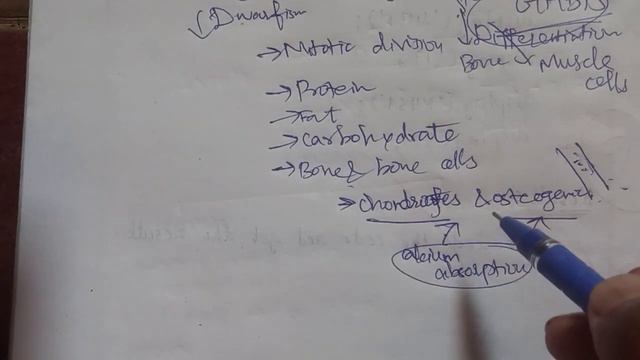 ↓Dwarfism
→Mitotic division
↓Differentiation
Bone & Muscle
cells
→Protein
→Fat
→Carbohydrate
→Bone & bone cells
→Chondrocytes & osteogenic
calcium
absorption